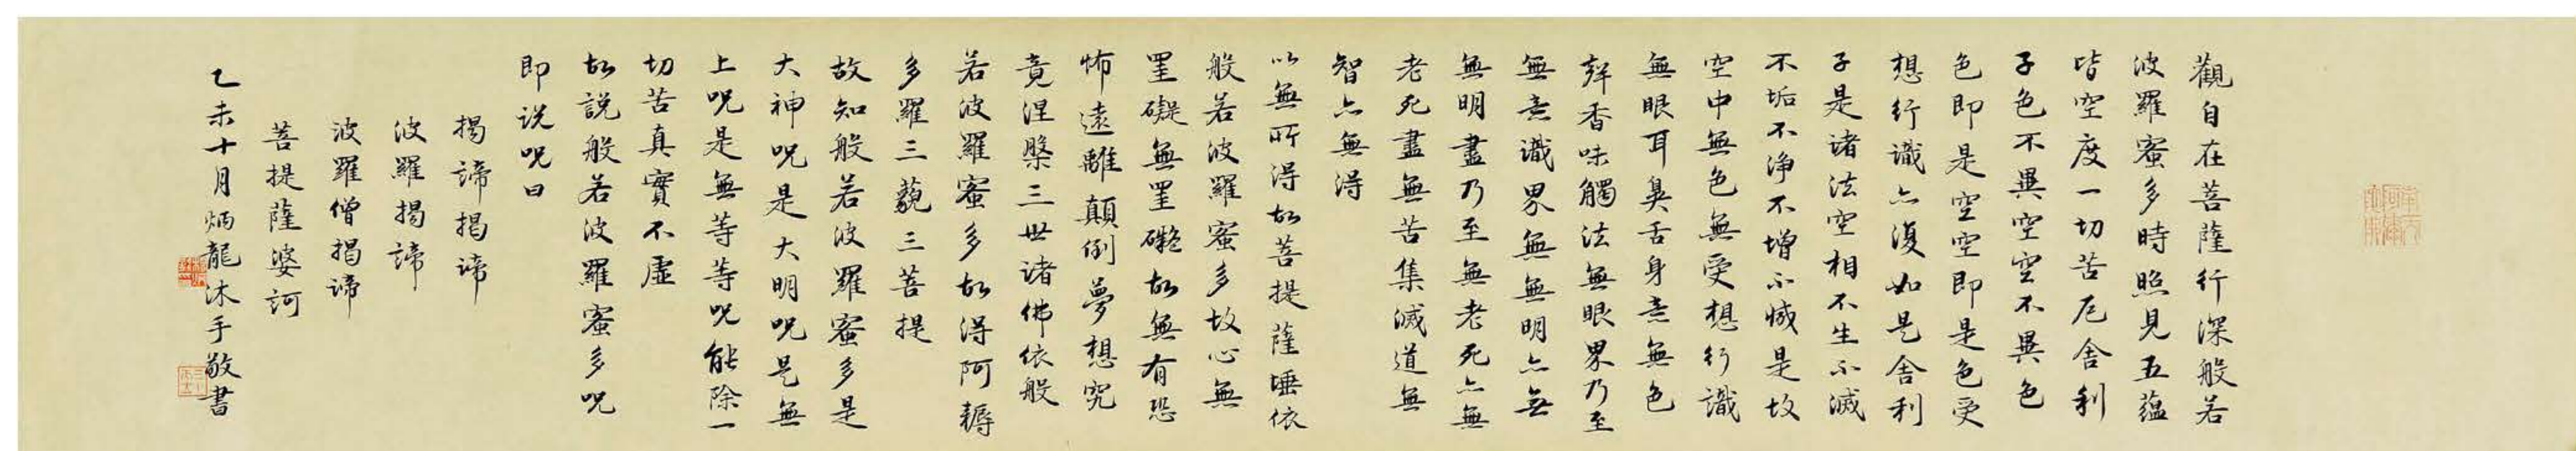 觀自在菩薩行深般若
波羅蜜多時照見五蘊
皆空度一切苦厄舍利
子色不異空空不異色
色即是空空即是色受
想行識亦復如是舍利
子是諸法空相不生不滅
不垢不淨不增不減是故
空中無色無受想行識
無眼耳鼻舌身意無色
聲香味觸法無眼界乃至
無意識界無無明亦無
無明盡乃至無老死亦無
老死盡無苦集滅道無
智亦無得
以無所得故菩提薩埵依
般若波羅蜜多故心無
罣礙無罣礙故無有恐
怖遠離顛倒夢想究
竟涅槃三世諸佛依般
若波羅蜜多故得阿耨
多羅三藐三菩提
故知般若波羅蜜多是
大神呪是大明呪是無
上呪是無等等呪能除一
切苦真實不虛
故說般若波羅蜜多呪
即說呪曰
揭諦揭諦
波羅揭諦
波羅僧揭諦
菩提薩婆訶
乙未十月炳龍沐手敬書